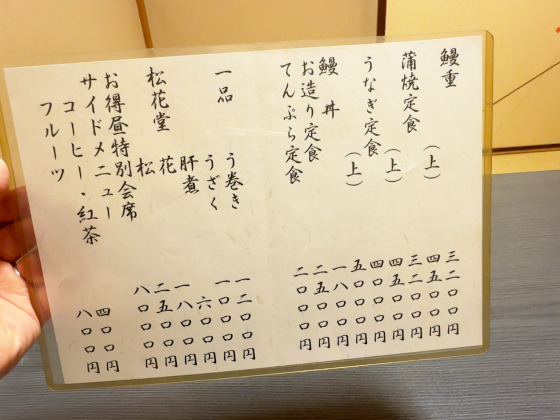 鰻重 三二〇〇円
（上） 四五〇〇円
蒲焼定食 三二〇〇円
（上） 四五〇〇円
うなぎ定食 四〇〇〇円
（上） 五〇〇〇円
鰻丼 一八〇〇円
お造り定食 二五〇〇円
てんぷら定食 二〇〇〇円
一品 う巻き 一二〇〇円
うざく 一〇〇〇円
肝煮 六〇〇円
松花堂 花 一八〇〇円
松 二五〇〇円
お得昼特別会席 八〇〇〇円
サイドメニュー
コーヒー・紅茶 四〇〇円
フルーツ 八〇〇円